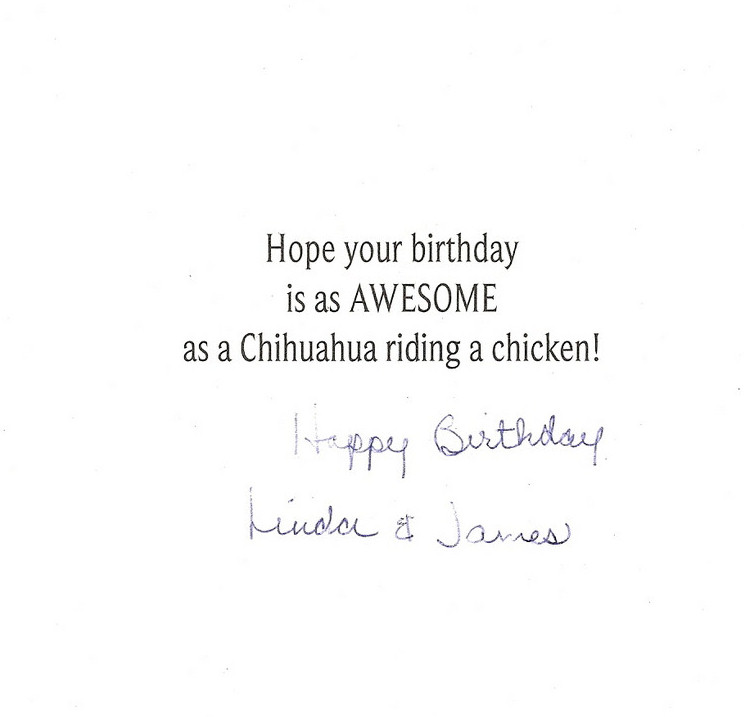 Hope your birthday
is as AWESOME
as a Chihuahua riding a chicken!
Happy Birthday
Linda & James